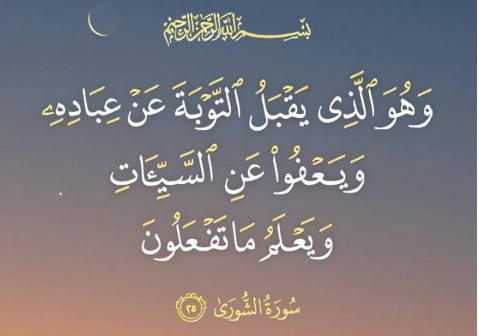 بِسْمِ اللَّهِ الرَّحْمَٰنِ الرَّحِيمِ
وَهُوَ ٱلَّذِى يَقْبَلُ ٱلتَّوْبَةَ عَنْ عِبَادِهِۦ
وَيَعْفُوا۟ عَنِ ٱلسَّيِّـَٔاتِ
وَيَعْلَمُ مَا تَفْعَلُونَ
سُورَةُ الشُّورَىٰ ٢٥